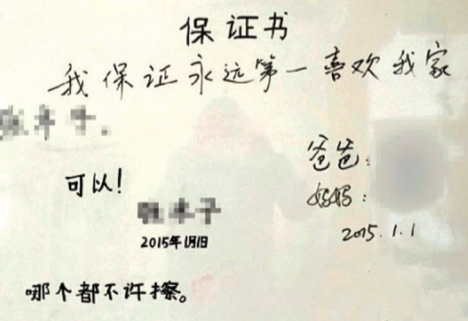 保证书
我保证永远第一喜欢我家
爸爸：
妈妈：
2015.1.1
可以！
2015年1月1日
哪个都不许擦。